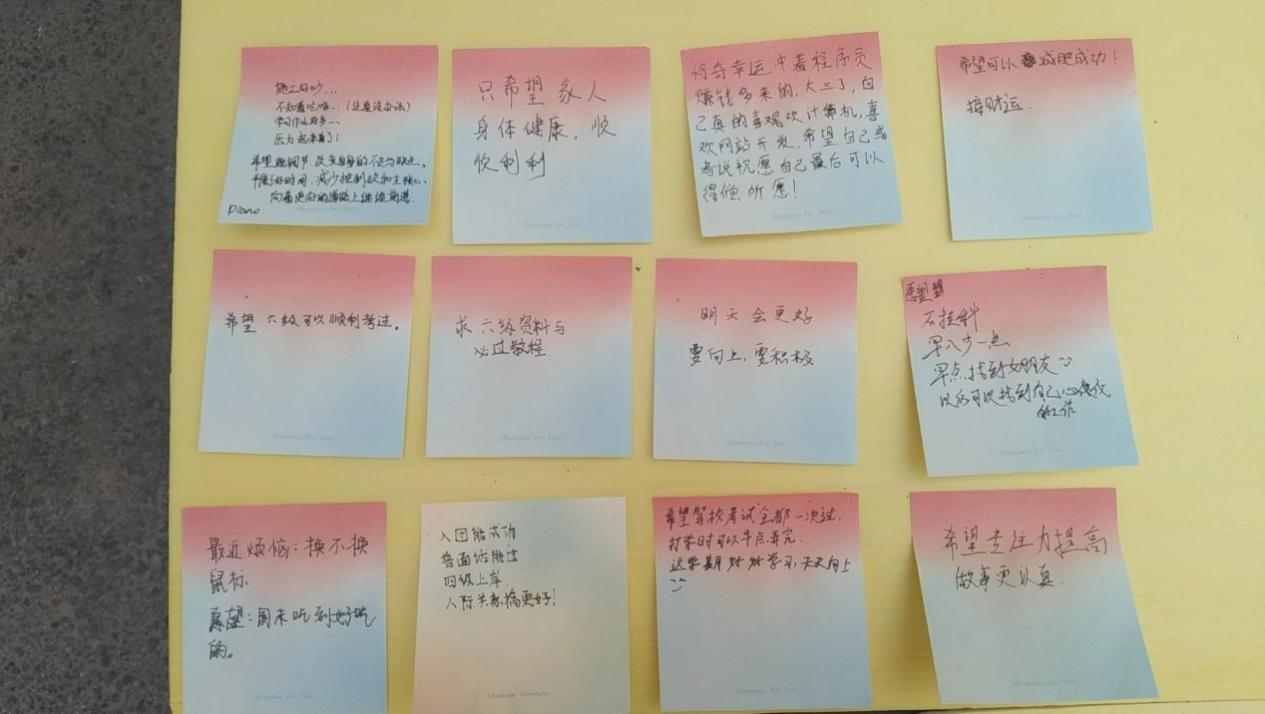 不知看吃啥...(还真没办法)
学习作业好多...
压力起来有了!
向着更好的道路上继续前进.
Piano
只希望 家人
身体健康，顺
顺利利
传奇幸运冲着程序员
赚钱多来的，大三了，自
己真的喜欢计算机，喜
欢网站开发，希望自己或
者说祝愿自己最后可以
得偿所愿！
希望可以减肥成功！
接财运.
希望 六级可以顺利考过。
求 六级资料与
必过教程
明天会更好
要向上，要积极
愿望
不挂科
早八少一点
早点找到女朋友
以后可以找到自己心仪
的工作
最近烦恼：换不换
鼠标
愿望：周末吃到好吃
的。
入团能成功
普面试能过
四级上岸.
人际关系搞更好!
希望驾校考试全都一次过.
打学时可以早点弄完.
这学期好好学习，天天向上
希望专注力提高.
做事更认真.